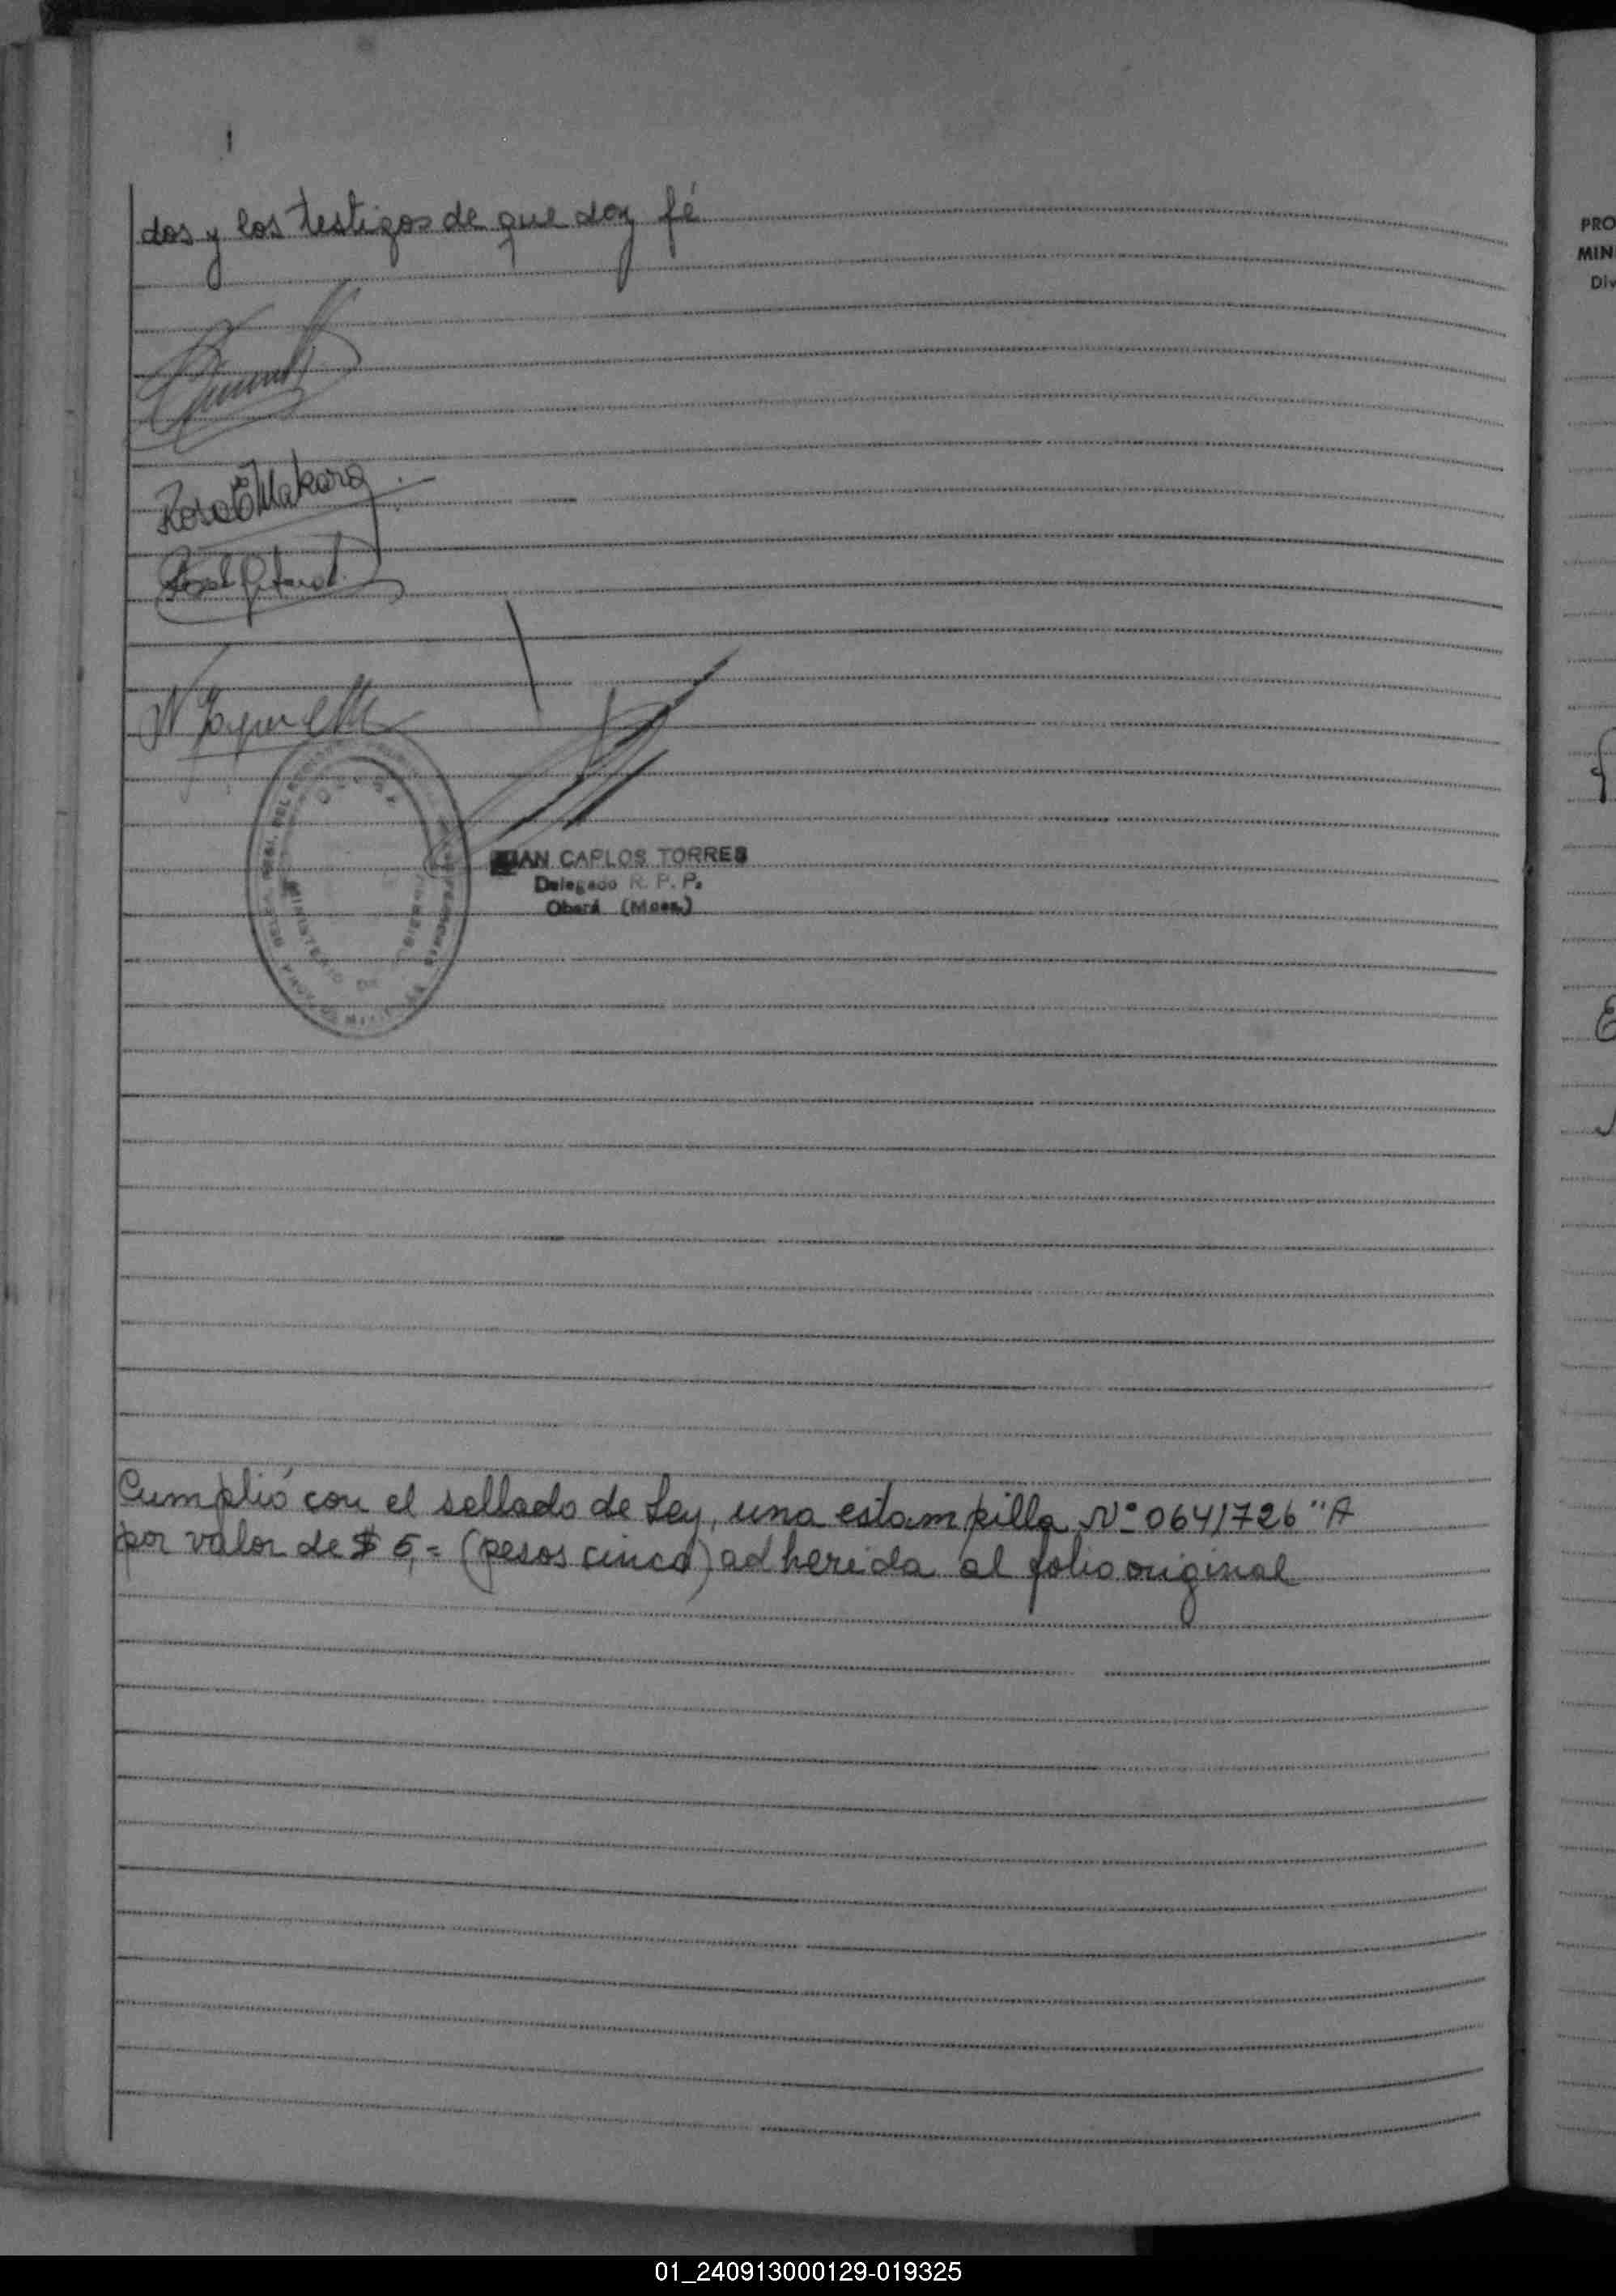 dos y los testigos de que doy fé
Rosa E Makara
JUAN CARLOS TORRES
Delegado R. P. P.
Oberá (Mnes.)
MINISTERIO DE
Cumplió con el sellado de Ley, una estampilla Nº 0641726 "A
por valor de $ 5,= (pesos cinco) adherida al folio original
PRO
MIN
Div
01_240913000129-019325